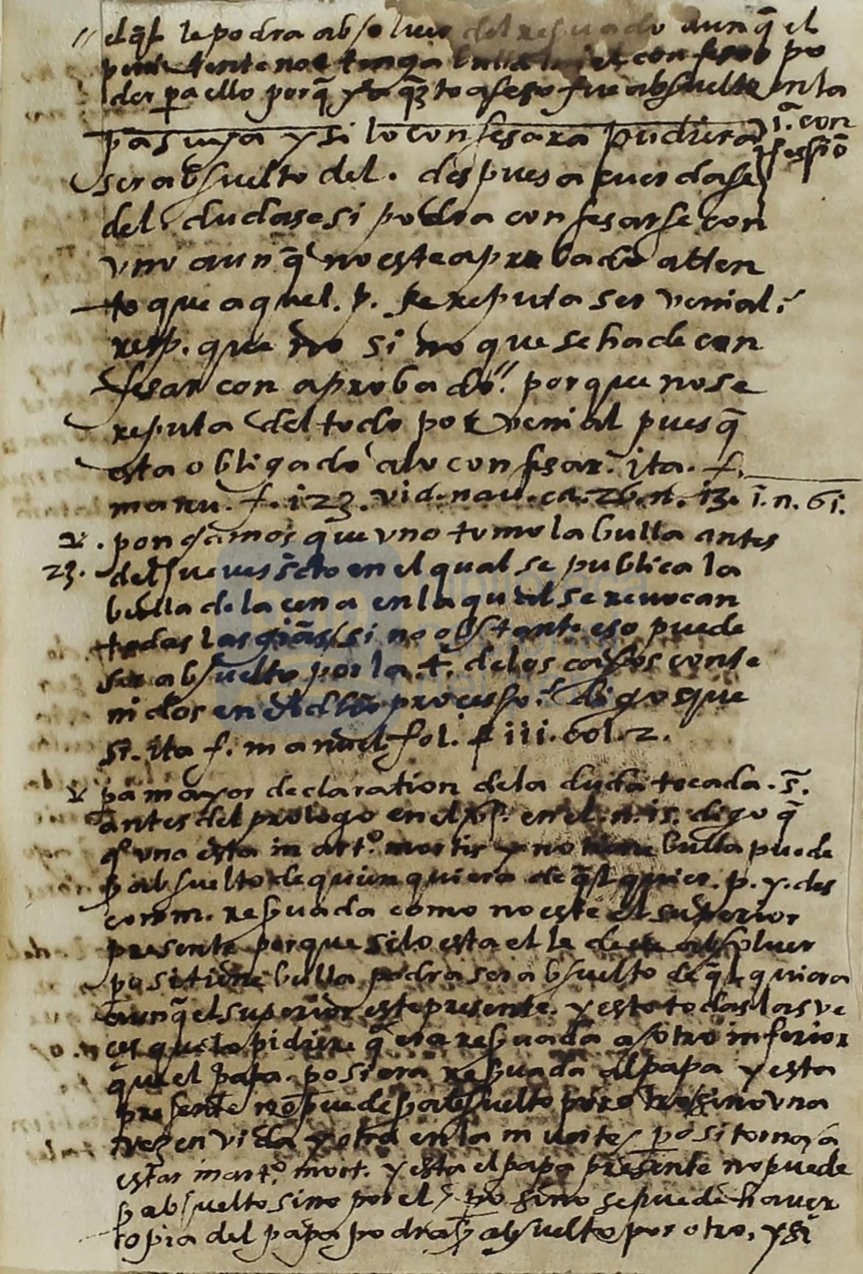 qlqr le podra absoluer del reseruado aunq̃ el
penitente no tenga bulla ni el confesor po
der pa ello porq̃ ya q̃to a eso fue absuelto en la
pasuya y si lo confesara pudiera 1.ª con
ser absuelto del. despues acuerdase fessiō
del. dudase si podra confesarse con
vno aunq̃ no este aprobado atten
to que aquel. p. se reputa ser venial.?
resp. que no sino que se ha de con
fesar con aprobado". porque no se
reputa del todo por venial pues q̃
esta obligado a lo confesar. ita. f.
manu. f. 123. vid. nau. ca. 26. n. 13. ī. n. 61.
2. pongamos que vno tomo la bulla antes
23. del jueues scto en el qual se publica la
bulla de la cena en la qual se reuocan
todas las grãs/ si no obstante eso puede
ser absuelto por la. †. de los casos conte
nidos en el dho processo.? digo que
si. ita f. manuel fol. fiii. col. 2.
pa mayor declaration de la duda tocada. s̄.
antes del prologo en el en el. n. 15. digo q̃
q̃ vno esta in art.º mortis y no tiene bulla puede
ser absuelto de quien quiera de qlquier. p. y. des
comm. reseruada como no este el superior
presente porque si lo esta el le deue absoluer
po si tiene bulla podra ser absuelto de qlquiera
aunq̃ el superior este presente. y esto todas las ve
ces que lo pidiere q̃ era reseruada a otro inferior
que el papa. po si era reseruada al papa y esta
presente no puede ser absuelto por otro sino vna
vez en vida y otra en la muerte/ po si torna a
estar in art.º mort. y esta el papa presente no puede
ser absuelto sino por el/ po si no se puede hauer
copia del papa podra ser absuelto por otro, y si